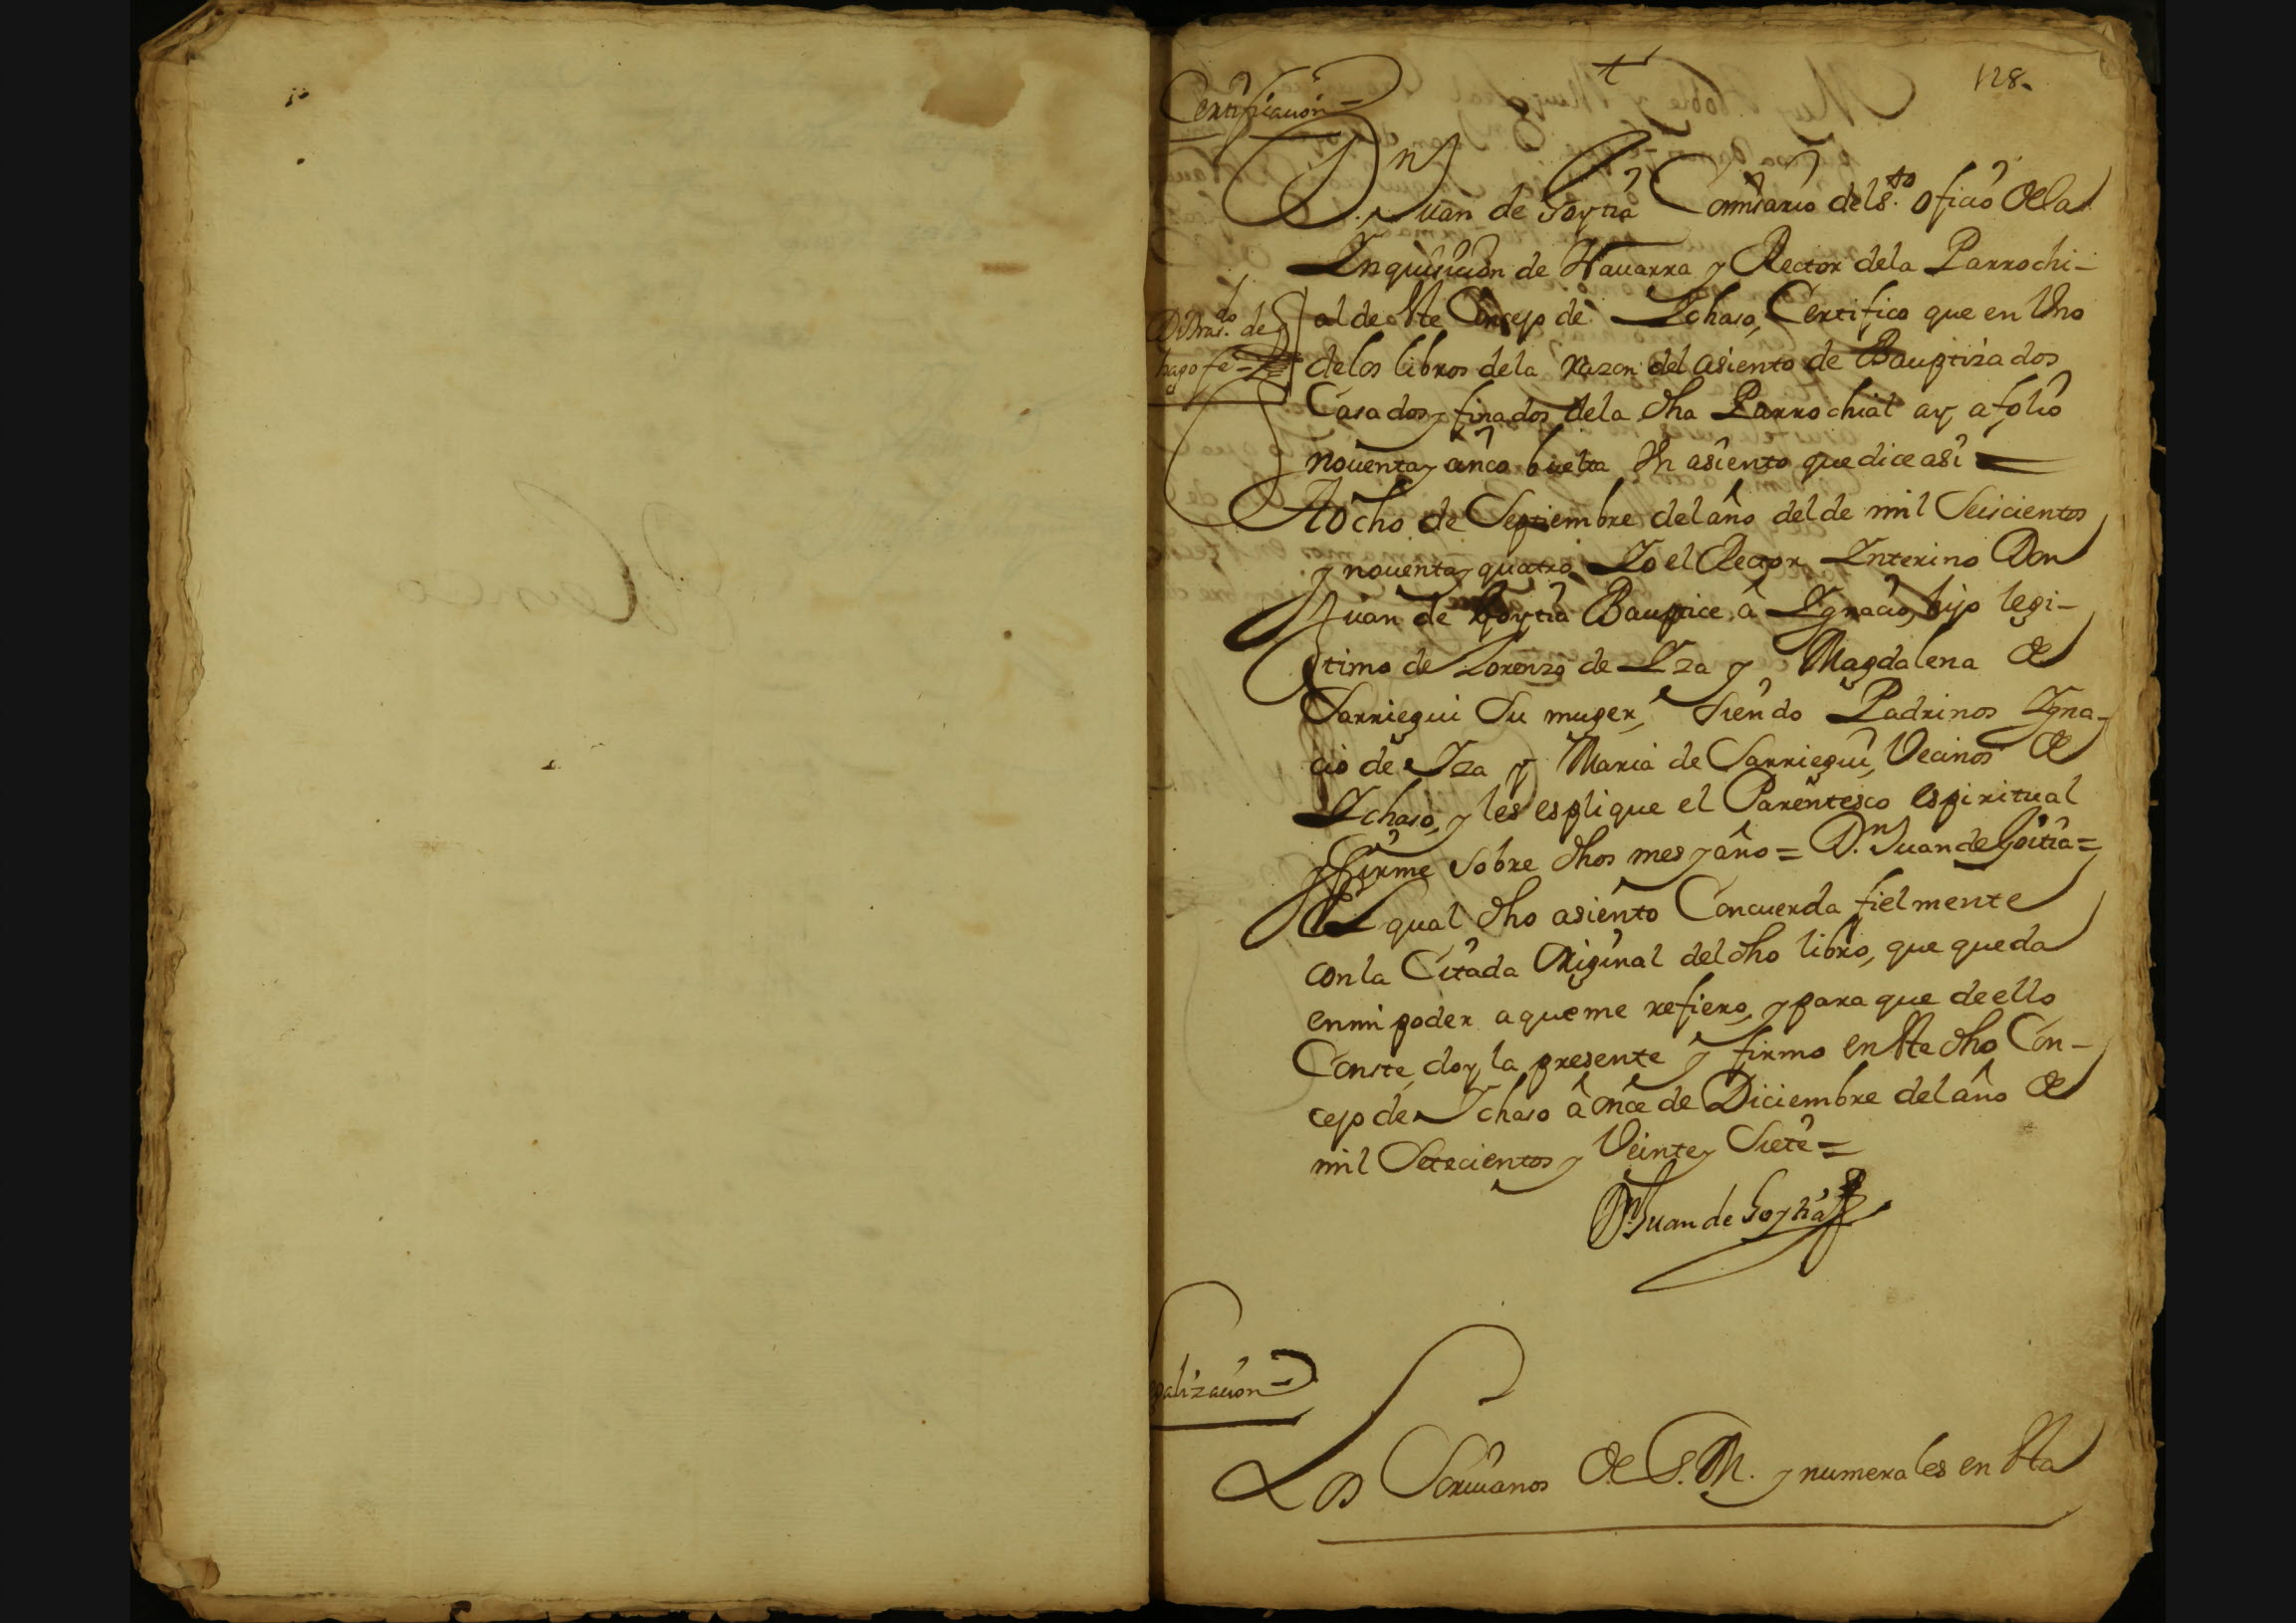 128.
Certificacion =
Dn Juan de Goytia Comisario del Sto. oficio de la
Inquisicion de Navarra y Rector dela Parrochi-
al de este Concejo de Ichaso, Certifico que en Uno
delos libros dela razon del asiento de Bauptizados
Casados y finados dela dha Parrochial ay, a folio
nouenta y cinco buelta Un asiento que dice asi =
A ocho de Septiembre del año del de mil Seiscientos
y nouenta y quatro Yo el Rector Interino Don
Juan de Goytia Bauptice, â Ygnacio, hijo legi-
timo de Lorenzo de Yza y Magdalena de
Sarriegui Su muger, Siendo Padrinos Igna-
cio de Iza y Maria de Sarriegui, Vecinos de
Ichaso, y les esplique el Parentesco espiritual
y firme sobre dhos mes y año = D.n Juan de Goitia =
El qual dho asiento Concuerda fielmente
con la Citada Original del dho libro, que queda
en mi poder a que me refiero, y para que de ello
Conste, doy la presente y firmo en este dho Con-
cejo de Ichaso â once de Diciembre del año de
mil Setecientos y Veinte y Siete =
Dn Juan de Goytia
de
hago fe =
alizacion =
Los Scriuanos de S. M. y numerales en esta